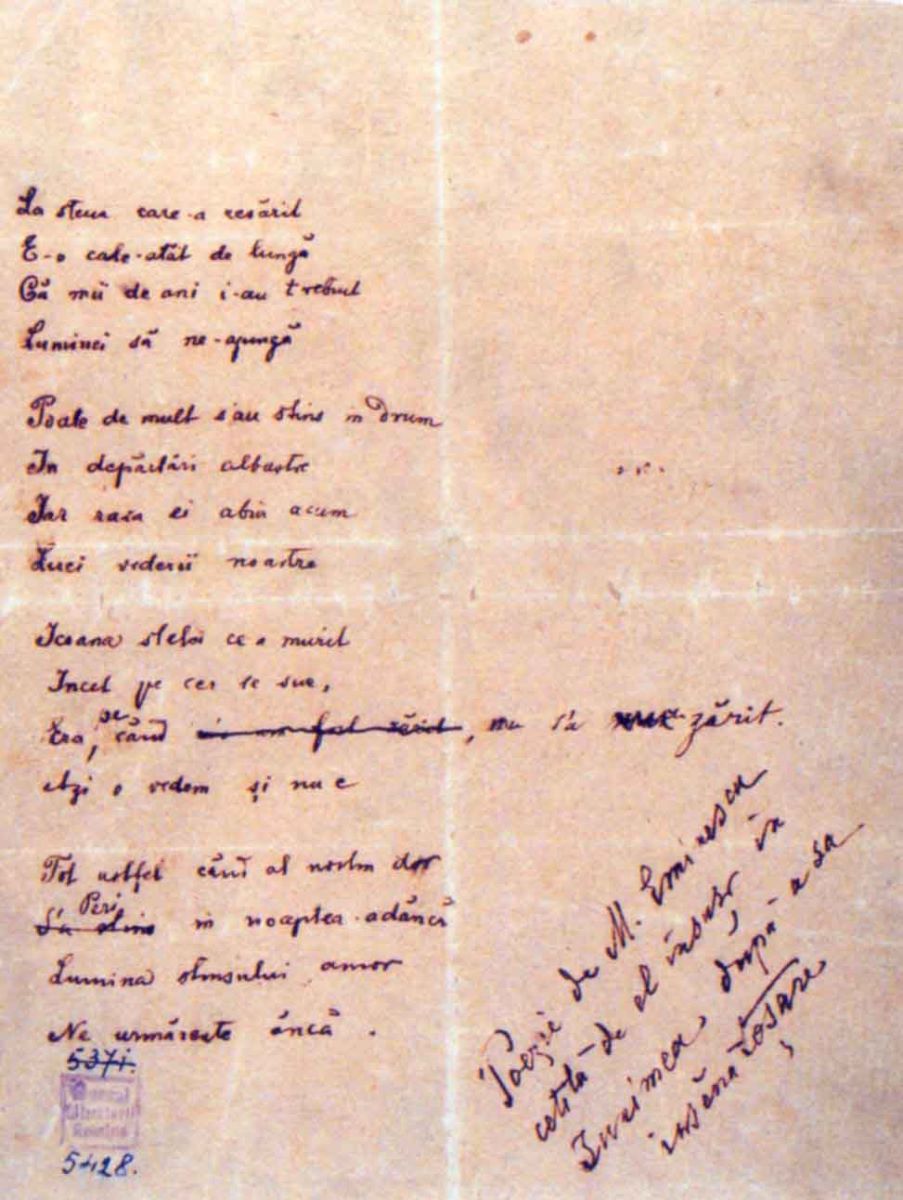 La steua care-a resărit
E-o cale-atât de lungă
Că mii de ani i-au trebuit
Luminei să ne-ajungă
Poate de mult s'au stins în drum
În depărtări albastre
Iar raza ei abia acum
Luci vederii noastre
Icoana stelei ce a murit
Încet pe cer se sue,
Era, pe când, nu s'a zărit.
Azi o vedem și nu e
Tot astfel când al nostru dor
Peri S'a stins în noaptea-adâncă
Lumina stinsului amor
Ne urmărește âncă.
5371.
Muzeul
Literaturii
Române
5428.
Poezie de M. Eminescu
cetită de el însuși în
Junimea, după a sa
însănătoșare